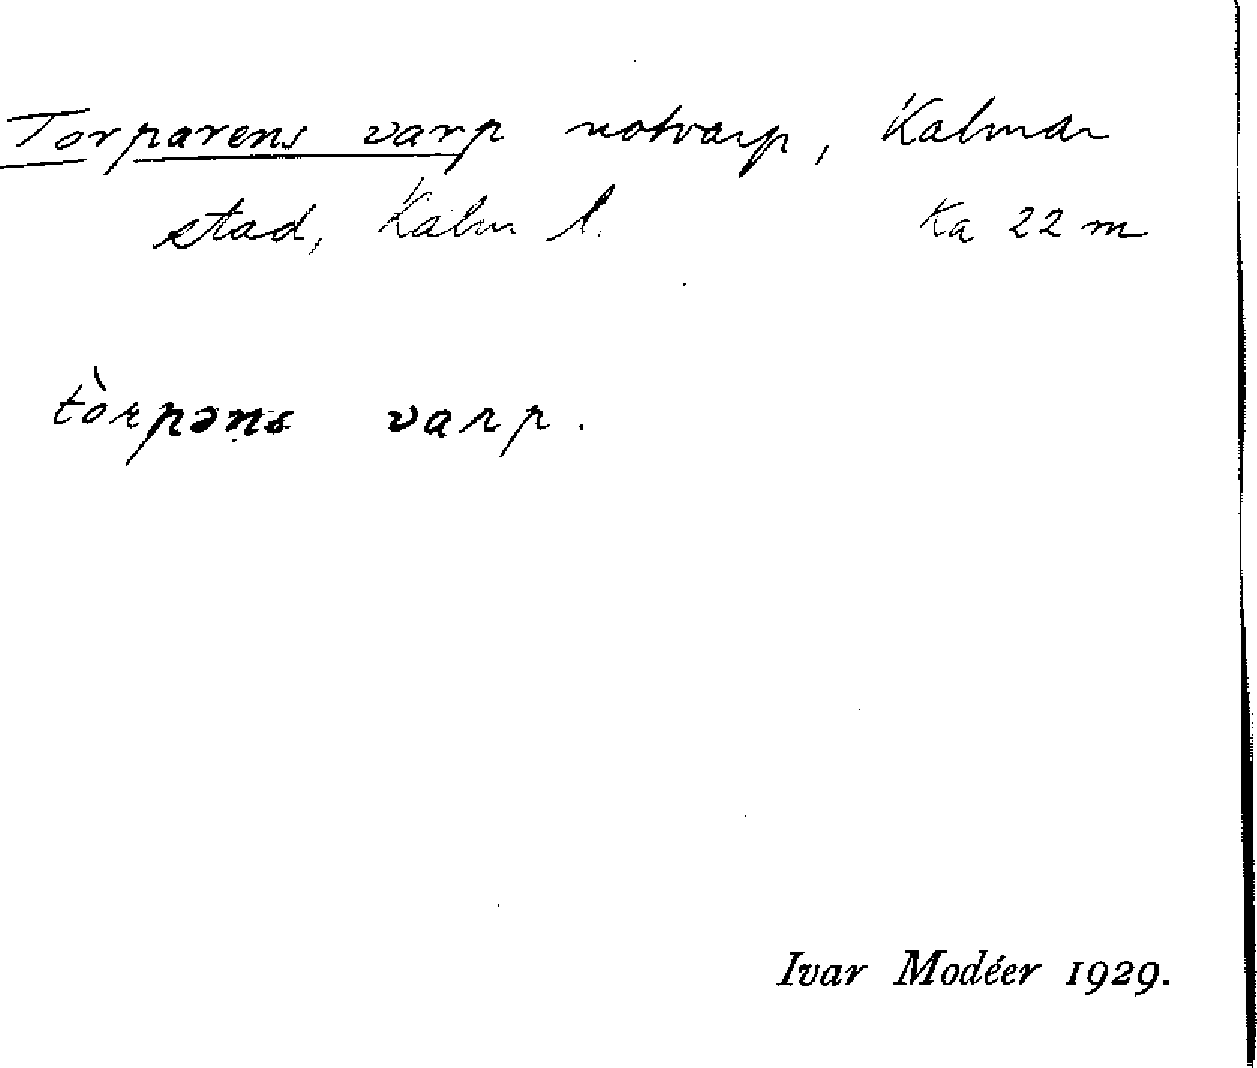 Torparens varp notvarp, Kalmar
stad, Kalm l. Ka 22 m
tòrpəns varp.
Ivar Modéer 1929.